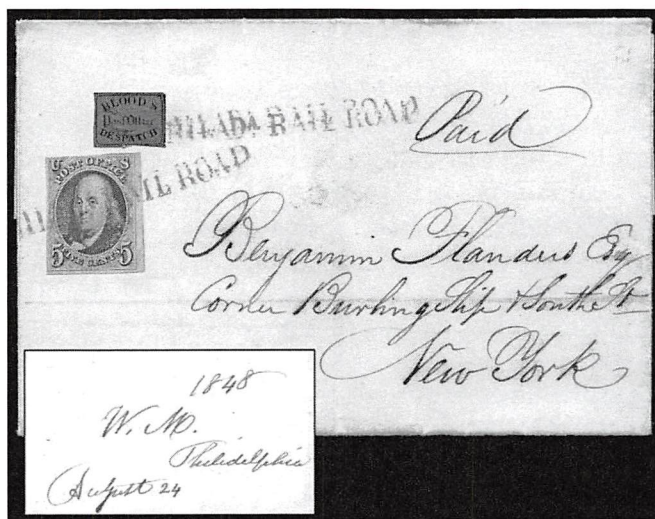 BLOOD'S
DESPATCH
PHILADA RAIL ROAD
Paid
POST OFFICE
RAIL ROAD
5 5
Benjamin Flanders Esq
Corner Burling Slip & South St
New York
1848
W. M.
Philidelphia
August 24